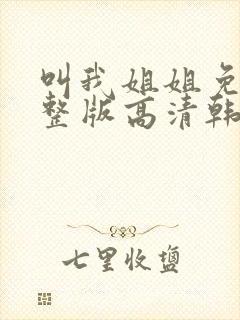 叫我姐姐免
整版高清韩
七里收盐